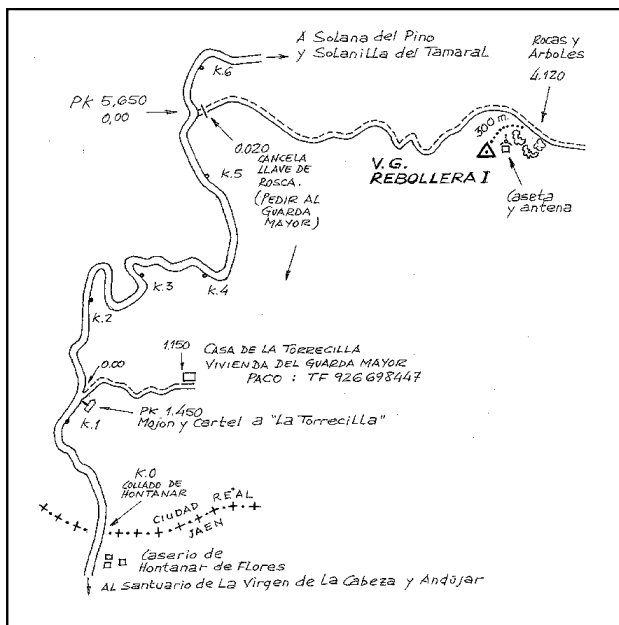 A Solana del Pino
y Solanilla del Tamaral
Rocas y
Arboles
4.120
K.6
PK 5,650
0,00
300 m.
0.020
CANCELA
LLAVE DE
ROSCA.
(PEDIR AL
GUARDA
MAYOR)
V.G.
REBOLLERA I
Caseta
y antena
K.5
K.4
K.3
K.2
1,150
CASA DE LA TORRECILLA
VIVIENDA DEL GUARDA MAYOR
PACO : TF 926698447
0.00
PK 1.450
Mojon y Cartel a "La Torrecilla"
K.1
K.0
COLLADO DE
HONTANAR
CIUDAD REAL
JAEN
Caserio de
Hontanar de Flores
AL Santuario de La Virgen de La Cabeza y Andújar